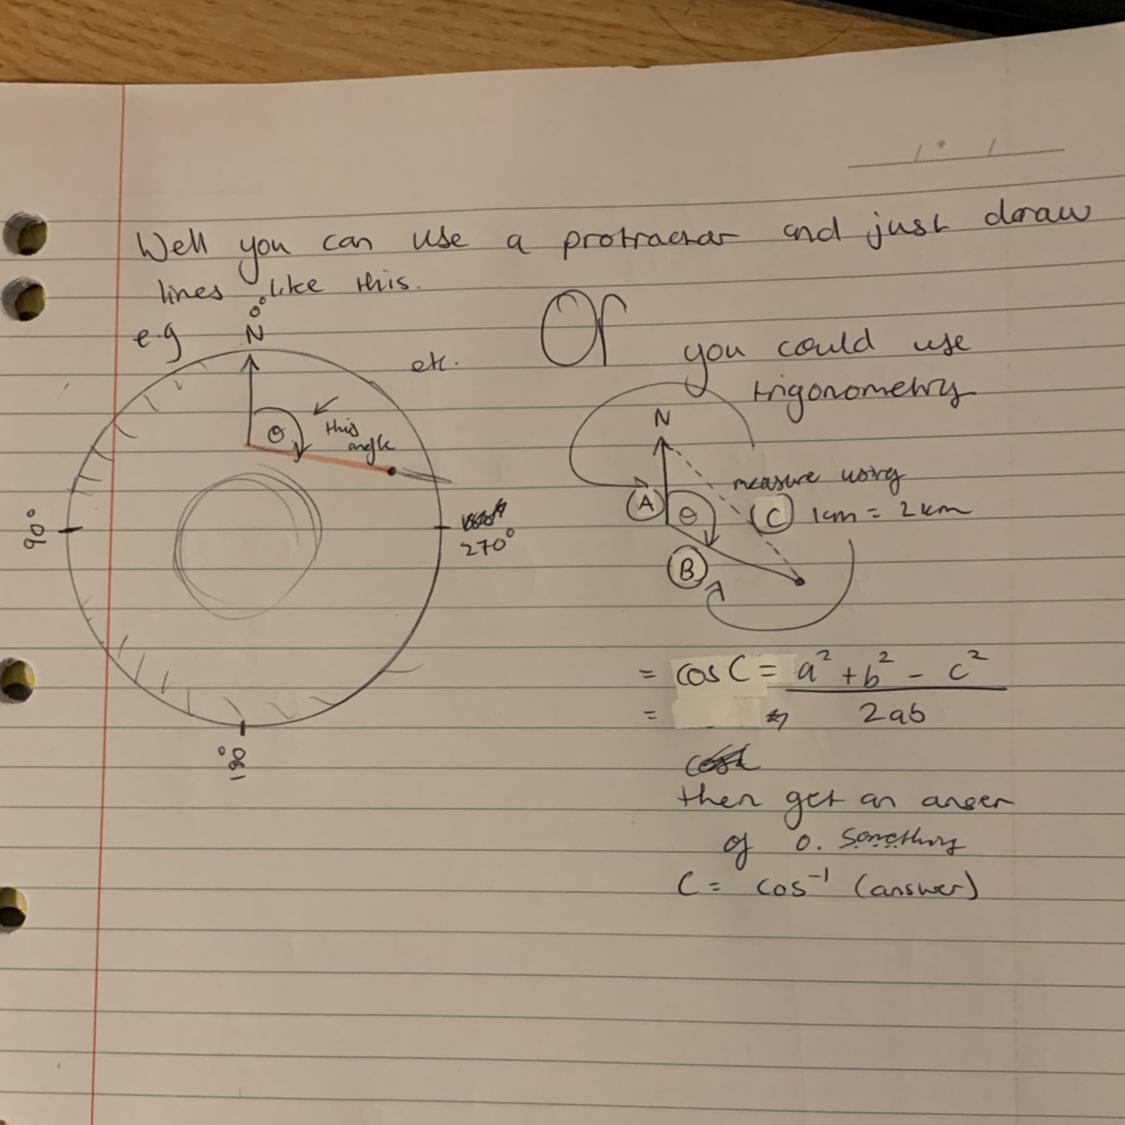 Well you can use a protractor and just draw
lines like this.
e.g
0°
N
etc.
θ
this
angle
90°
270°
180°
Or
you could use
trigonometry
N
measure using
A
θ
C
1cm = 2km
B
= cos C = a² + b² - c²
2ab
=
then get an anser
of 0. something
C = cos⁻¹ (answer)